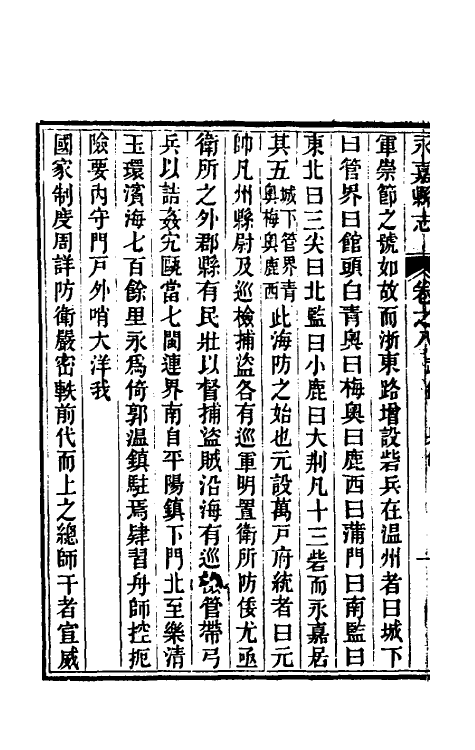 永嘉縣志 卷之八
軍崇節之號如故而浙東路增設砦兵在温州者曰城下
曰管界曰館頭曰青奧曰梅奧曰鹿西曰蒲門曰南監曰
東北曰三尖曰北監曰小鹿曰大荆凡十三砦而永嘉居
其五城下管界青奧梅奧鹿西此海防之始也元設萬戸府統者曰元
帥凡州縣尉及巡檢捕盜各有巡軍明置衛所防倭尤亟
衛所之外郡縣有民壯以督捕盜賊沿海有巡檢管帶弓
兵以詰姦宄甌當七閩連界南自平陽鎮下門北至樂清
玉環濱海七百餘里永爲倚郭温鎮駐焉肄習舟師控扼
險要内守門戸外哨大洋我
國家制度周詳防衛嚴密軼前代而上之總師干者宣威